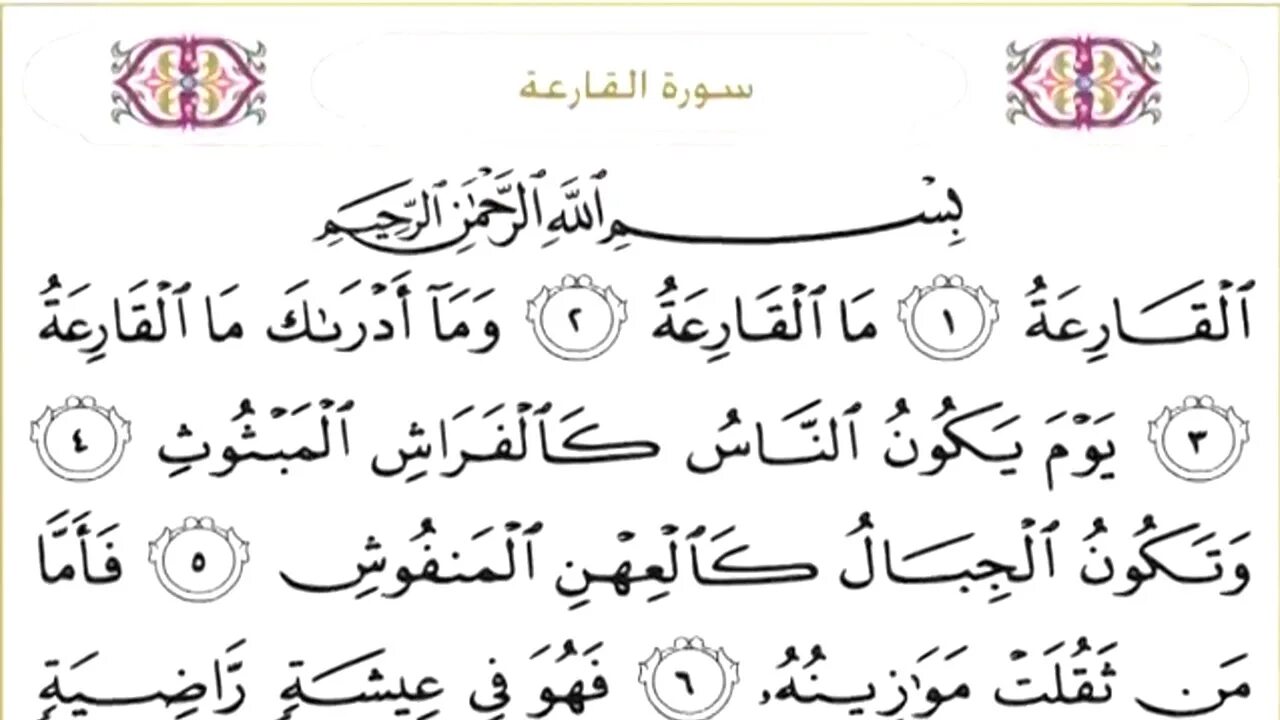 سورة القارعة
بِسْمِ ٱللَّهِ ٱلرَّحْمَٰنِ ٱلرَّحِيمِ
ٱلْقَارِعَةُ ١ مَا ٱلْقَارِعَةُ ٢ وَمَآ أَدْرَىٰكَ مَا ٱلْقَارِعَةُ
٣ يَوْمَ يَكُونُ ٱلنَّاسُ كَٱلْفَرَاشِ ٱلْمَبْثُوثِ ٤
وَتَكُونُ ٱلْجِبَالُ كَٱلْعِهْنِ ٱلْمَنفُوشِ ٥ فَأَمَّا
مَن ثَقُلَتْ مَوَٰزِينُهُۥ ٦ فَهُوَ فِى عِيشَةٍ رَّاضِيَةٍ